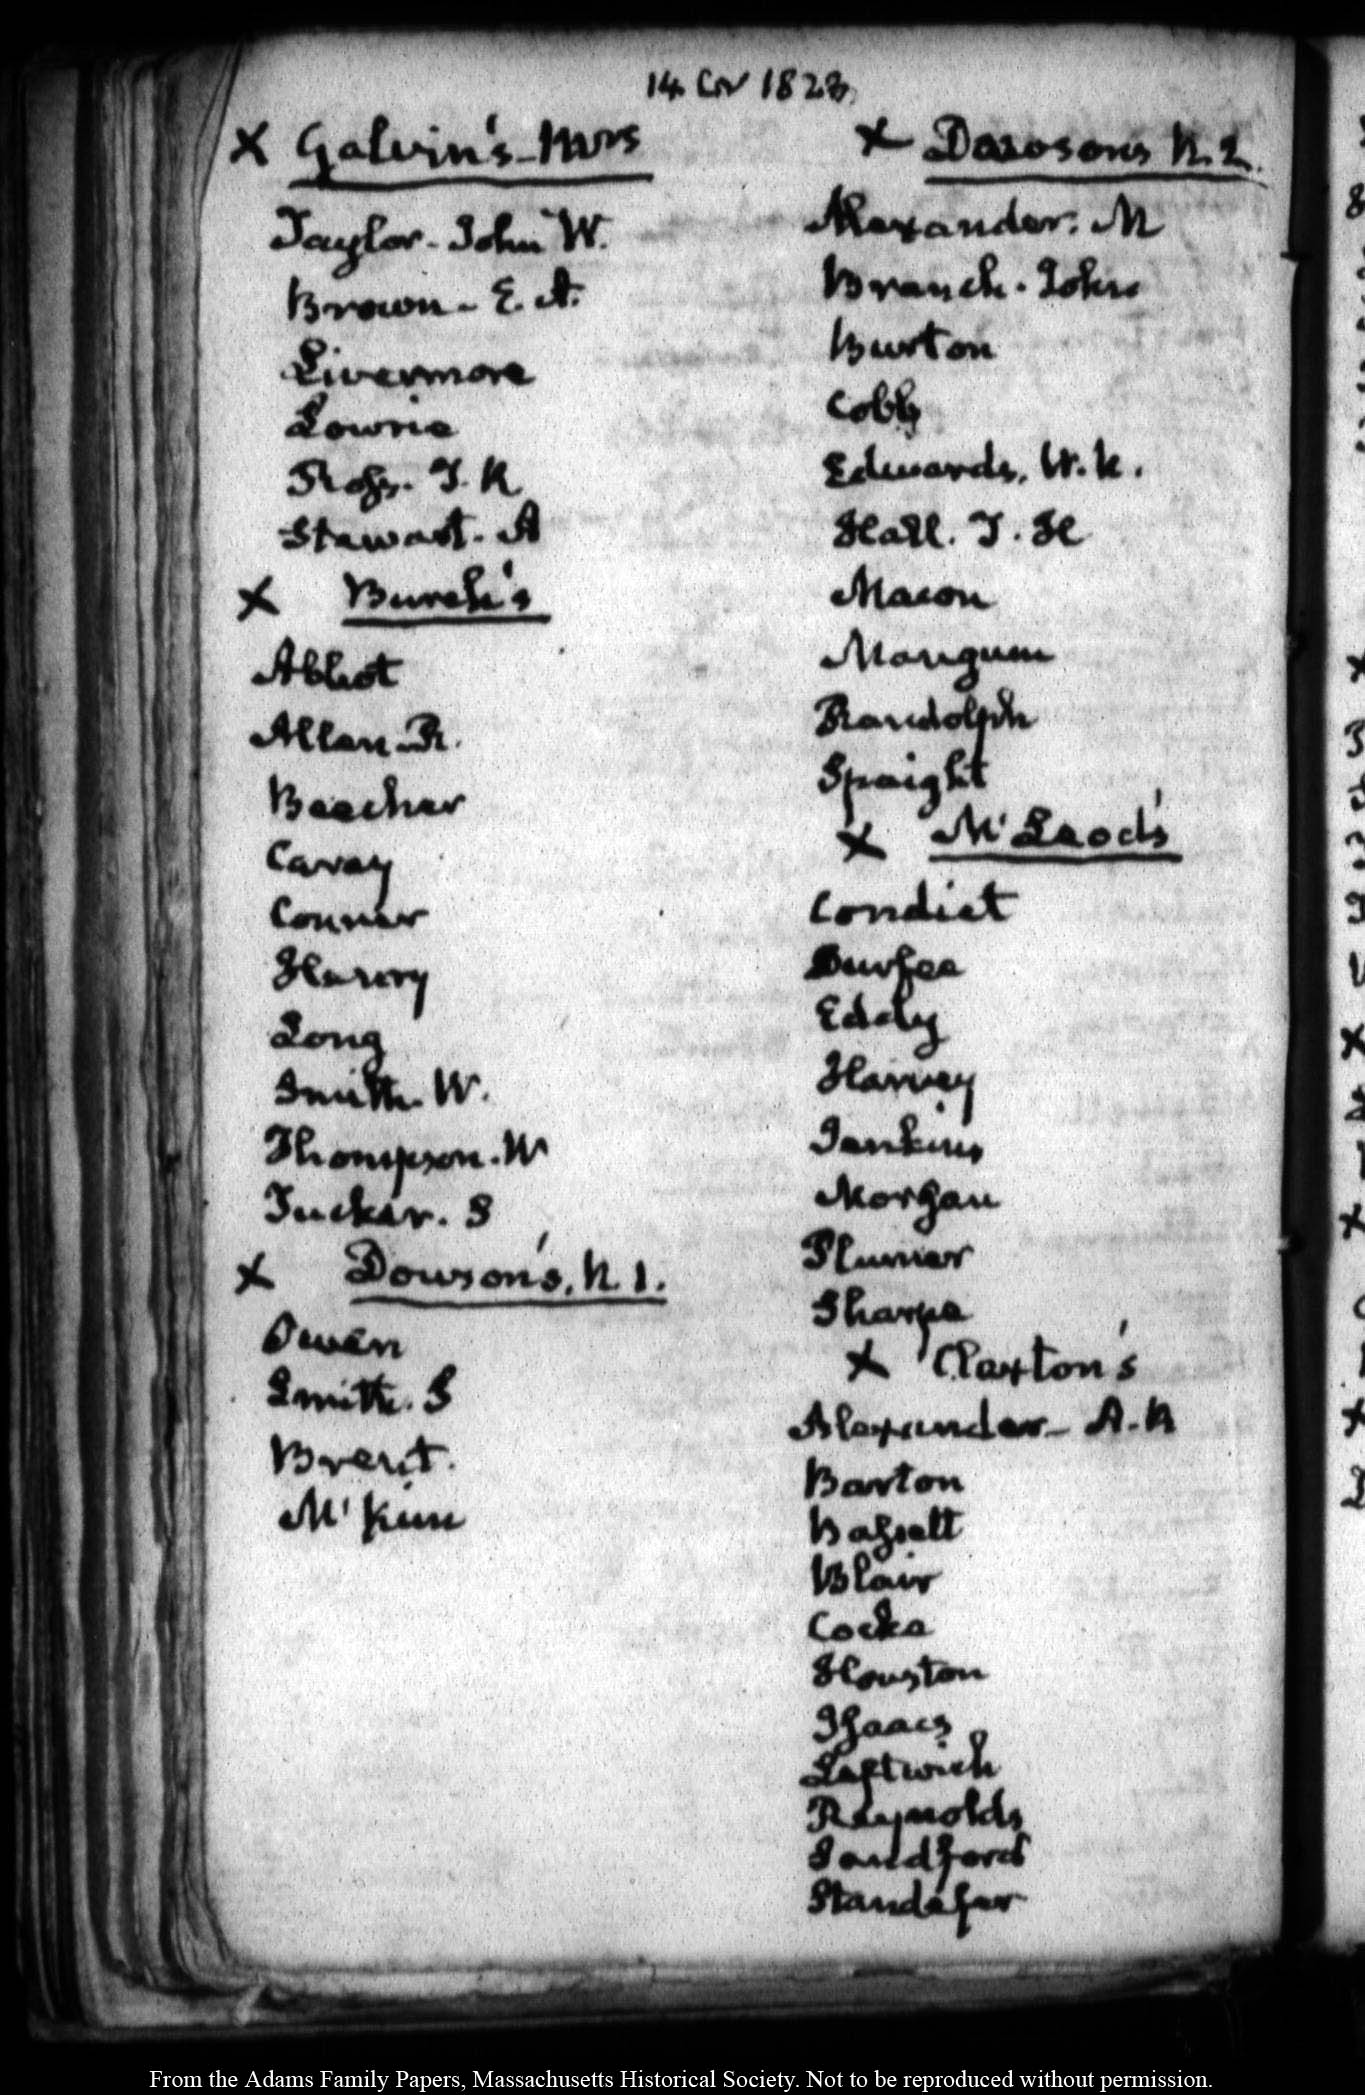 14. Cov 1823.
X Galvin's-Mrs
Taylor- John W.
Brown- E. A.
Livermore
Lowrie
Ross. T. R
Stewart. A
X Burch's
Abbot
Allen. R.
Beecher
Carey
Conner
Harvey
Long
Smith. W.
Thompson. W
Tucker. S
X Dowson's, N. 1.
Owen
Smith. S
Brent.
M'Kim
X Dawosons N. 2.
Alexander. M
Branch. John
Burton
Cobb
Edwards, W. k.
Hall. T. H
Macon
Mangum
Randolph
Spaight
X M'Leod's
Condict
Durfee
Eddy
Harvey
Jenkins
Morgan
Plumer
Sharpe
X Claxton's
Alexander- A. R
Barton
Bassett
Blair
Cocke
Houston
Isaacs
Leftwich
Reynolds
Sandford
Standefer
From the Adams Family Papers, Massachusetts Historical Society. Not to be reproduced without permission.